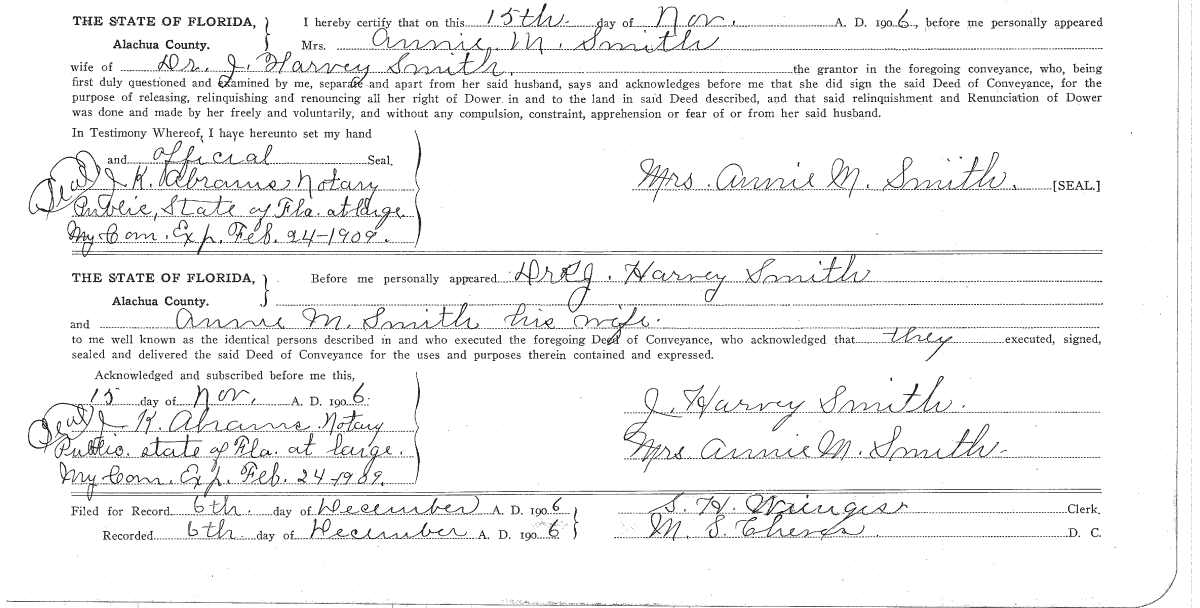 THE STATE OF FLORIDA, I hereby certify that on this 15th day of Nov. A. D. 1906, before me personally appeared
Alachua County. Mrs. Annie M. Smith
wife of Dr. J. Harvey Smith. the grantor in the foregoing conveyance, who, being
first duly questioned and examined by me, separate and apart from her said husband, says and acknowledges before me that she did sign the said Deed of Conveyance, for the
purpose of releasing, relinquishing and renouncing all her right of Dower in and to the land in said Deed described, and that said relinquishment and Renunciation of Dower
was done and made by her freely and voluntarily, and without any compulsion, constraint, apprehension or fear of or from her said husband.
In Testimony Whereof, I have hereunto set my hand
and official Seal.
Seal J K. Abrams Notary
Mrs. Annie M. Smith. [SEAL.]
Public, State of Fla. at large
My Com. Exp. Feb. 24-1909.
THE STATE OF FLORIDA, Before me personally appeared Dr J. Harvey Smith
Alachua County.
and Annie M. Smith his wife.
to me well known as the identical persons described in and who executed the foregoing Deed of Conveyance, who acknowledged that they executed, signed,
sealed and delivered the said Deed of Conveyance for the uses and purposes therein contained and expressed.
Acknowledged and subscribed before me this,
15 day of Nov. A. D. 1906.
J. Harvey Smith.
Seal J K. Abrams Notary
Public. state of Fla. at large.
Mrs. Annie M. Smith.
My Com. Exp. Feb. 24-1909.
Filed for Record 6th. day of December A. D. 1906 S. H. Wienges Clerk.
Recorded 6th day of December A. D. 1906 M. S. Cheves D. C.